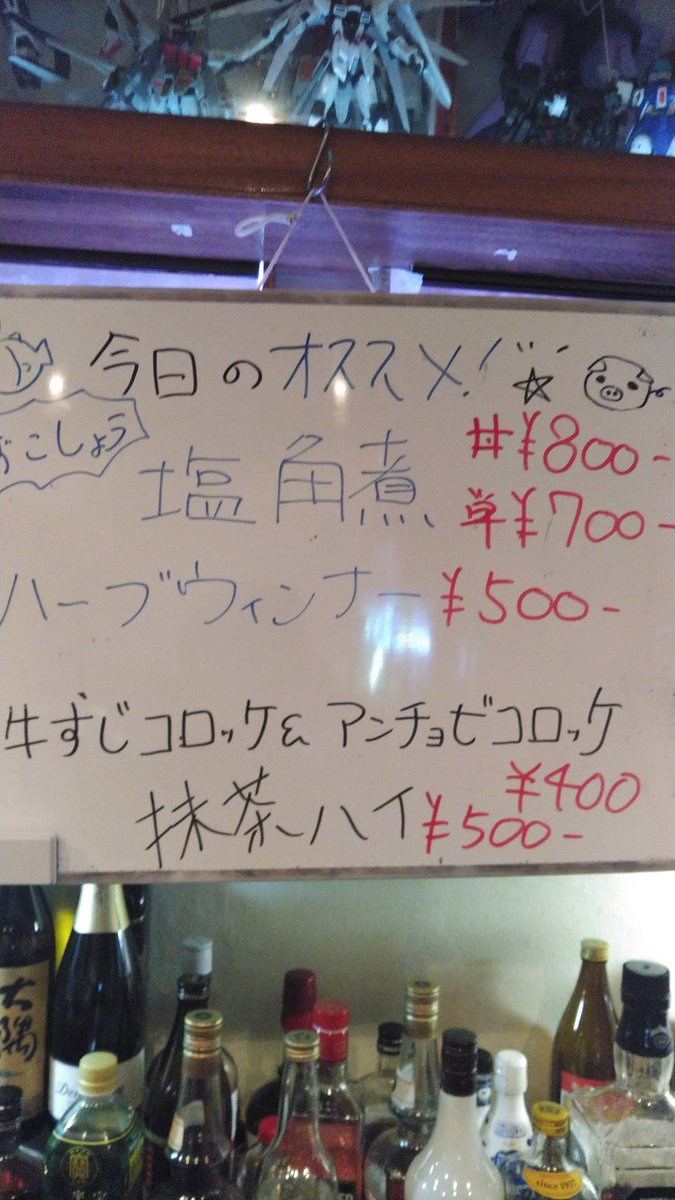 今日のオススメ!
ずこしょう
塩角煮 丼¥800-
単¥700-
ハーブウィンナー ¥500-
牛すじコロッケ& アンチョビコロッケ
¥400
抹茶ハイ ¥500-
大隅
since 1957